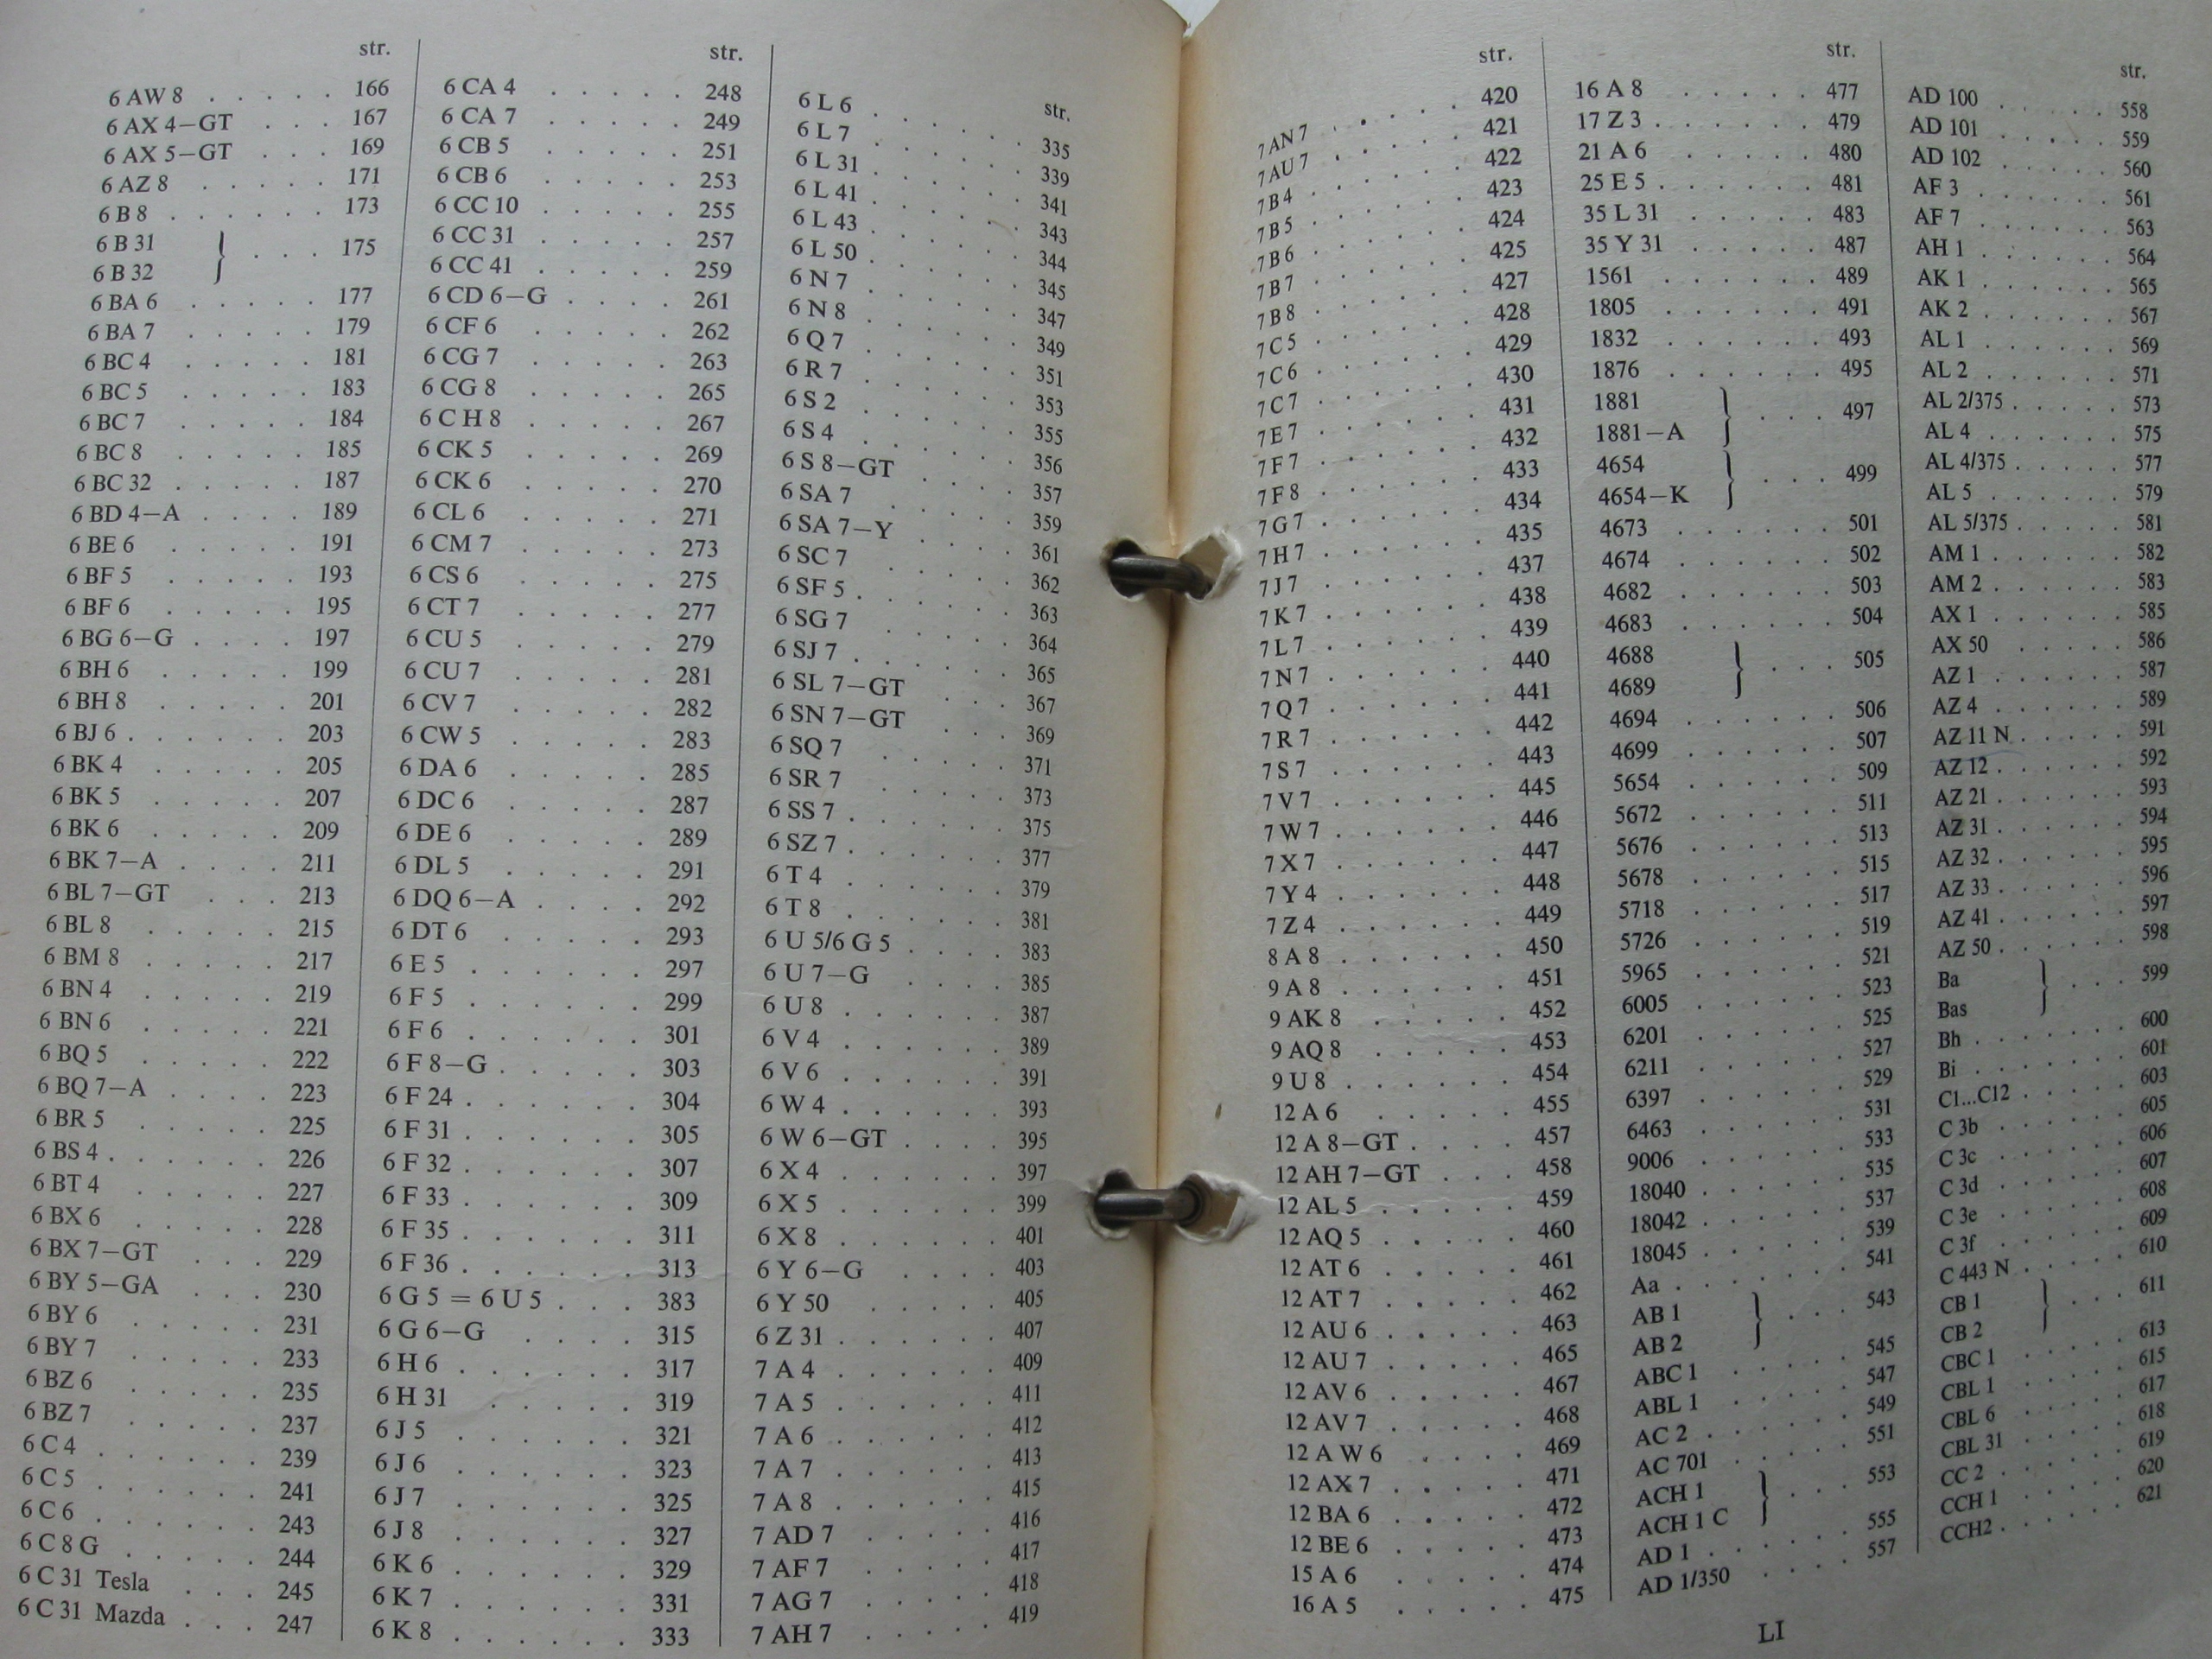 str.
6 AW 8 . . . . . 166
6 AX 4–GT . . . 167
6 AX 5–GT . . . 169
6 AZ 8 . . . . . 171
6 B 8 . . . . . . 173
6 B 31
6 B 32 } . . . 175
6 BA 6 . . . . . 177
6 BA 7 . . . . . 179
6 BC 4 . . . . . 181
6 BC 5 . . . . . 183
6 BC 7 . . . . . 184
6 BC 8 . . . . . 185
6 BC 32 . . . . . 187
6 BD 4–A . . . . 189
6 BE 6 . . . . . 191
6 BF 5 . . . . . 193
6 BF 6 . . . . . 195
6 BG 6–G . . . . 197
6 BH 6 . . . . . 199
6 BH 8 . . . . . 201
6 BJ 6 . . . . . . 203
6 BK 4 . . . . . 205
6 BK 5 . . . . . 207
6 BK 6 . . . . . 209
6 BK 7–A . . . . 211
6 BL 7–GT . . . 213
6 BL 8 . . . . . 215
6 BM 8 . . . . . 217
6 BN 4 . . . . . 219
6 BN 6 . . . . . 221
6 BQ 5 . . . . . 222
6 BQ 7–A . . . . 223
6 BR 5 . . . . . 225
6 BS 4 . . . . . . 226
6 BT 4 . . . . . 227
6 BX 6 . . . . . 228
6 BX 7–GT . . . 229
6 BY 5–GA . . . 230
6 BY 6 . . . . . 231
6 BY 7 . . . . . 233
6 BZ 6 . . . . . 235
6 BZ 7 . . . . . 237
6 C 4 . . . . . . 239
6 C 5 . . . . . . 241
6 C 6 . . . . . . 243
6 C 8 G . . . . . 244
6 C 31 Tesla . . . 245
6 C 31 Mazda . . . 247
str.
6 CA 4 . . . . . 248
6 CA 7 . . . . . 249
6 CB 5 . . . . . 251
6 CB 6 . . . . . 253
6 CC 10 . . . . . 255
6 CC 31 . . . . . 257
6 CC 41 . . . . . 259
6 CD 6–G . . . . 261
6 CF 6 . . . . . 262
6 CG 7 . . . . . 263
6 CG 8 . . . . . 265
6 C H 8 . . . . . 267
6 CK 5 . . . . . 269
6 CK 6 . . . . . 270
6 CL 6 . . . . . 271
6 CM 7 . . . . . 273
6 CS 6 . . . . . 275
6 CT 7 . . . . . 277
6 CU 5 . . . . . 279
6 CU 7 . . . . . 281
6 CV 7 . . . . . 282
6 CW 5 . . . . . 283
6 DA 6 . . . . . 285
6 DC 6 . . . . . 287
6 DE 6 . . . . . 289
6 DL 5 . . . . . 291
6 DQ 6–A . . . . 292
6 DT 6 . . . . . 293
6 E 5 . . . . . . 297
6 F 5 . . . . . . 299
6 F 6 . . . . . . 301
6 F 8–G . . . . . 303
6 F 24 . . . . . . 304
6 F 31 . . . . . . 305
6 F 32 . . . . . . 307
6 F 33 . . . . . . 309
6 F 35 . . . . . . 311
6 F 36 . . . . . . 313
6 G 5 = 6 U 5 . . . 383
6 G 6–G . . . . . 315
6 H 6 . . . . . . 317
6 H 31 . . . . . 319
6 J 5 . . . . . . 321
6 J 6 . . . . . . 323
6 J 7 . . . . . . 325
6 J 8 . . . . . . 327
6 K 6 . . . . . . 329
6 K 7 . . . . . . 331
6 K 8 . . . . . . 333
str.
6 L 6 . . . . . . 335
6 L 7 . . . . . . 339
6 L 31 . . . . . . 341
6 L 41 . . . . . . 343
6 L 43 . . . . . . 344
6 L 50 . . . . . . 345
6 N 7 . . . . . . 347
6 N 8 . . . . . . 349
6 Q 7 . . . . . . 351
6 R 7 . . . . . . 353
6 S 2 . . . . . . 355
6 S 4 . . . . . . 356
6 S 8–GT . . . . 357
6 SA 7 . . . . . 359
6 SA 7–Y . . . . 361
6 SC 7 . . . . . 362
6 SF 5 . . . . . . 363
6 SG 7 . . . . . 364
6 SJ 7 . . . . . . 365
6 SL 7–GT . . . 367
6 SN 7–GT . . . 369
6 SQ 7 . . . . . 371
6 SR 7 . . . . . 373
6 SS 7 . . . . . . 375
6 SZ 7 . . . . . . 377
6 T 4 . . . . . . 379
6 T 8 . . . . . . 381
6 U 5/6 G 5 . . . . 383
6 U 7–G . . . . . 385
6 U 8 . . . . . . 387
6 V 4 . . . . . . 389
6 V 6 . . . . . . 391
6 W 4 . . . . . . 393
6 W 6–GT . . . . 395
6 X 4 . . . . . . 397
6 X 5 . . . . . . 399
6 X 8 . . . . . . 401
6 Y 6–G . . . . 403
6 Y 50 . . . . . 405
6 Z 31 . . . . . . 407
7 A 4 . . . . . . 409
7 A 5 . . . . . . 411
7 A 6 . . . . . . 412
7 A 7 . . . . . . 413
7 A 8 . . . . . . 415
7 AD 7 . . . . . 416
7 AF 7 . . . . . 417
7 AG 7 . . . . . 418
7 AH 7 . . . . . 419
str.
7 AN 7 . . . . . 420
7 AU 7 . . . . . 421
7 B 4 . . . . . . 422
7 B 5 . . . . . . 423
7 B 6 . . . . . . 424
7 B 7 . . . . . . 425
7 B 8 . . . . . . 427
7 C 5 . . . . . . 428
7 C 6 . . . . . . 429
7 C 7 . . . . . . 430
7 E 7 . . . . . . 431
7 F 7 . . . . . . 432
7 F 8 . . . . . . 433
7 G 7 . . . . . . 434
7 H 7 . . . . . . 435
7 J 7 . . . . . . 437
7 K 7 . . . . . . 438
7 L 7 . . . . . . 439
7 N 7 . . . . . . 440
7 Q 7 . . . . . . 441
7 R 7 . . . . . . 442
7 S 7 . . . . . . 443
7 V 7 . . . . . . 445
7 W 7 . . . . . . 446
7 X 7 . . . . . . 447
7 Y 4 . . . . . . 448
7 Z 4 . . . . . . 449
8 A 8 . . . . . . 450
9 A 8 . . . . . . 451
9 AK 8 . . . . . 452
9 AQ 8 . . . . . 453
9 U 8 . . . . . . 454
12 A 6 . . . . . 455
12 A 8–GT . . . . 457
12 AH 7–GT . . . 458
12 AL 5 . . . . . 459
12 AQ 5 . . . . . 460
12 AT 6 . . . . . 461
12 AT 7 . . . . . 462
12 AU 6 . . . . . 463
12 AU 7 . . . . . 465
12 AV 6 . . . . . 467
12 AV 7 . . . . . 468
12 A W 6 . . . . 469
12 AX 7 . . . . . 471
12 BA 6 . . . . . 472
12 BE 6 . . . . . 473
15 A 6 . . . . . 474
16 A 5 . . . . . 475
str.
16 A 8 . . . . . 477
17 Z 3 . . . . . . 479
21 A 6 . . . . . 480
25 E 5 . . . . . . 481
35 L 31 . . . . . 483
35 Y 31 . . . . . 487
1561 . . . . . . 489
1805 . . . . . . 491
1832 . . . . . . 493
1876 . . . . . . 495
1881
1881–A } . . . 497
4654
4654–K } . . . 499
4673 . . . . . . 501
4674 . . . . . . 502
4682 . . . . . . 503
4683 . . . . . . 504
4688
4689 } . . . 505
4694 . . . . . . 506
4699 . . . . . . 507
5654 . . . . . . 509
5672 . . . . . . 511
5676 . . . . . . 513
5678 . . . . . . 515
5718 . . . . . . 517
5726 . . . . . . 519
5965 . . . . . . 521
6005 . . . . . . 523
6201 . . . . . . 525
6211 . . . . . . 527
6397 . . . . . . 529
6463 . . . . . . 531
9006 . . . . . . 533
18040 . . . . . . 535
18042 . . . . . . 537
18045 . . . . . . 539
Aa . . . . . . . 541
AB 1
AB 2 } . . . 543
ABC 1 . . . . . 545
ABL 1 . . . . . 547
AC 2 . . . . . . 549
AC 701 . . . . . 551
ACH 1
ACH 1 C } . . . 553
AD 1 . . . . . . 555
AD 1/350 . . . . 557
str.
AD 100 . . . . . 558
AD 101 . . . . . 559
AD 102 . . . . . 560
AF 3 . . . . . . 561
AF 7 . . . . . . 563
AH 1 . . . . . . 564
AK 1 . . . . . . 565
AK 2 . . . . . . 567
AL 1 . . . . . . 569
AL 2 . . . . . . 571
AL 2/375 . . . . . 573
AL 4 . . . . . . 575
AL 4/375 . . . . . 577
AL 5 . . . . . . 579
AL 5/375 . . . . . 581
AM 1 . . . . . . 582
AM 2 . . . . . . 583
AX 1 . . . . . . 585
AX 50 . . . . . 586
AZ 1 . . . . . . 587
AZ 4 . . . . . . 589
AZ 11 N . . . . . 591
AZ 12 . . . . . . 592
AZ 21 . . . . . . 593
AZ 31 . . . . . . 594
AZ 32 . . . . . . 595
AZ 33 . . . . . . 596
AZ 41 . . . . . . 597
AZ 50 . . . . . . 598
Ba
Bas } . . . 599
Bh . . . . . . . 600
Bi . . . . . . . 601
C1...C12 . . . . . 603
C 3b . . . . . . 605
C 3c . . . . . . 606
C 3d . . . . . . 607
C 3e . . . . . . 608
C 3f . . . . . . 609
C 443 N . . . . . 610
CB 1
CB 2 } . . . 611
CBC 1 . . . . . 613
CBL 1 . . . . . 615
CBL 6 . . . . . 617
CBL 31 . . . . . 618
CC 2 . . . . . . 619
CCH 1 . . . . . 620
CCH2 . . . . . . 621
LI